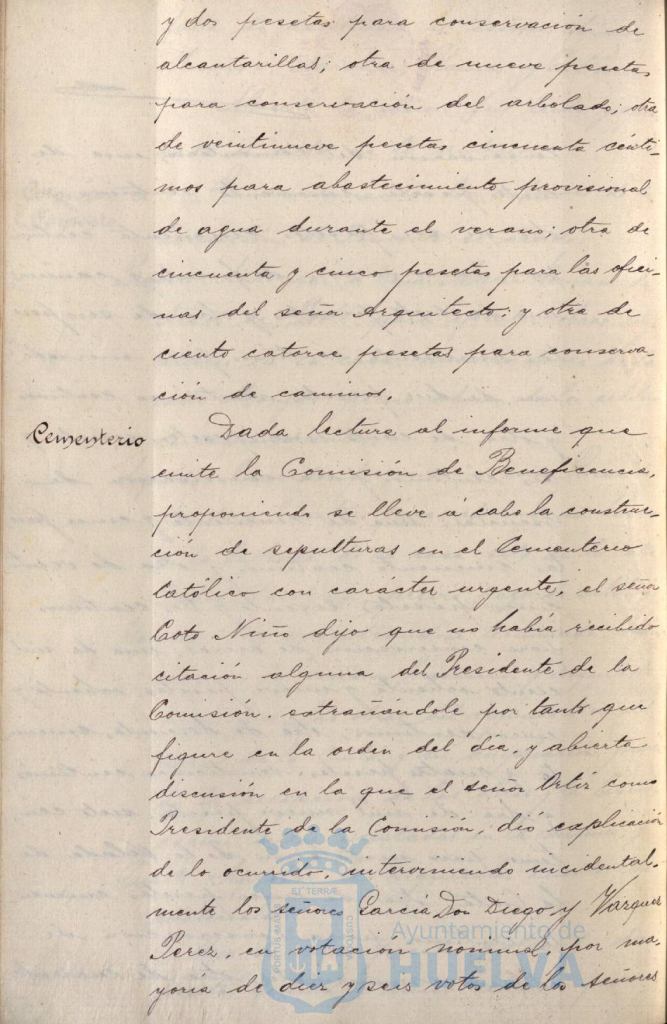 y dos pesetas para conservación de
alcantarillas; otra de nueve pesetas
para conservación del arbolado; otra
de veintinueve pesetas cincuenta cénti-
mos para abastecimiento provisional
de agua durante el verano; otra de
cincuenta y cinco pesetas para las ofici-
nas del señor Arquitecto; y otra de
ciento catorce pesetas para conserva-
ción de caminos.
Cementerio
Dada lectura al informe que
emite la Comisión de Beneficencia,
proponiendo se lleve á cabo la construc-
ción de sepulturas en el Cementerio
Católico con carácter urgente, el señor
Coto Niño dijo que no había recibido
citación alguna del Presidente de la
Comisión, extrañándole por tanto que
figure en la orden del día, y abierta
discusión en la que el señor Ortiz como
Presidente de la Comisión, dió explicación
de lo ocurrido, interviniendo incidental-
mente los señores García Don Diego y Vazquez
Perez, en votación nominal, por ma-
yoría de diez y seis votos de los señores
ET TERRÆ
PORTUS MARIS
CUSTODIA
Ayuntamiento de
HUELVA